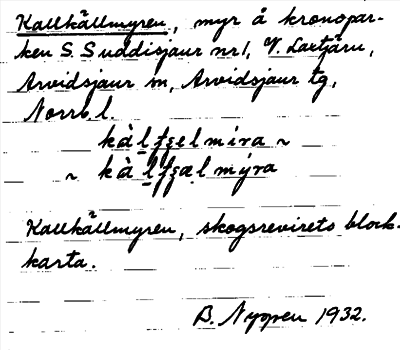 Kallkällmyren, myr å kronopar-
ken S Suddisjaur nr 1, V. Laxtjärn,
Arvidsjaur sn, Arvidsjaur tg,
Norrb. l.
kàl̠ʈʂelmíra ~
~ kàl̠ʈʂælmýra
Kallkällmyren, skogsrevirets block-
karta.
B. Nygren 1932.